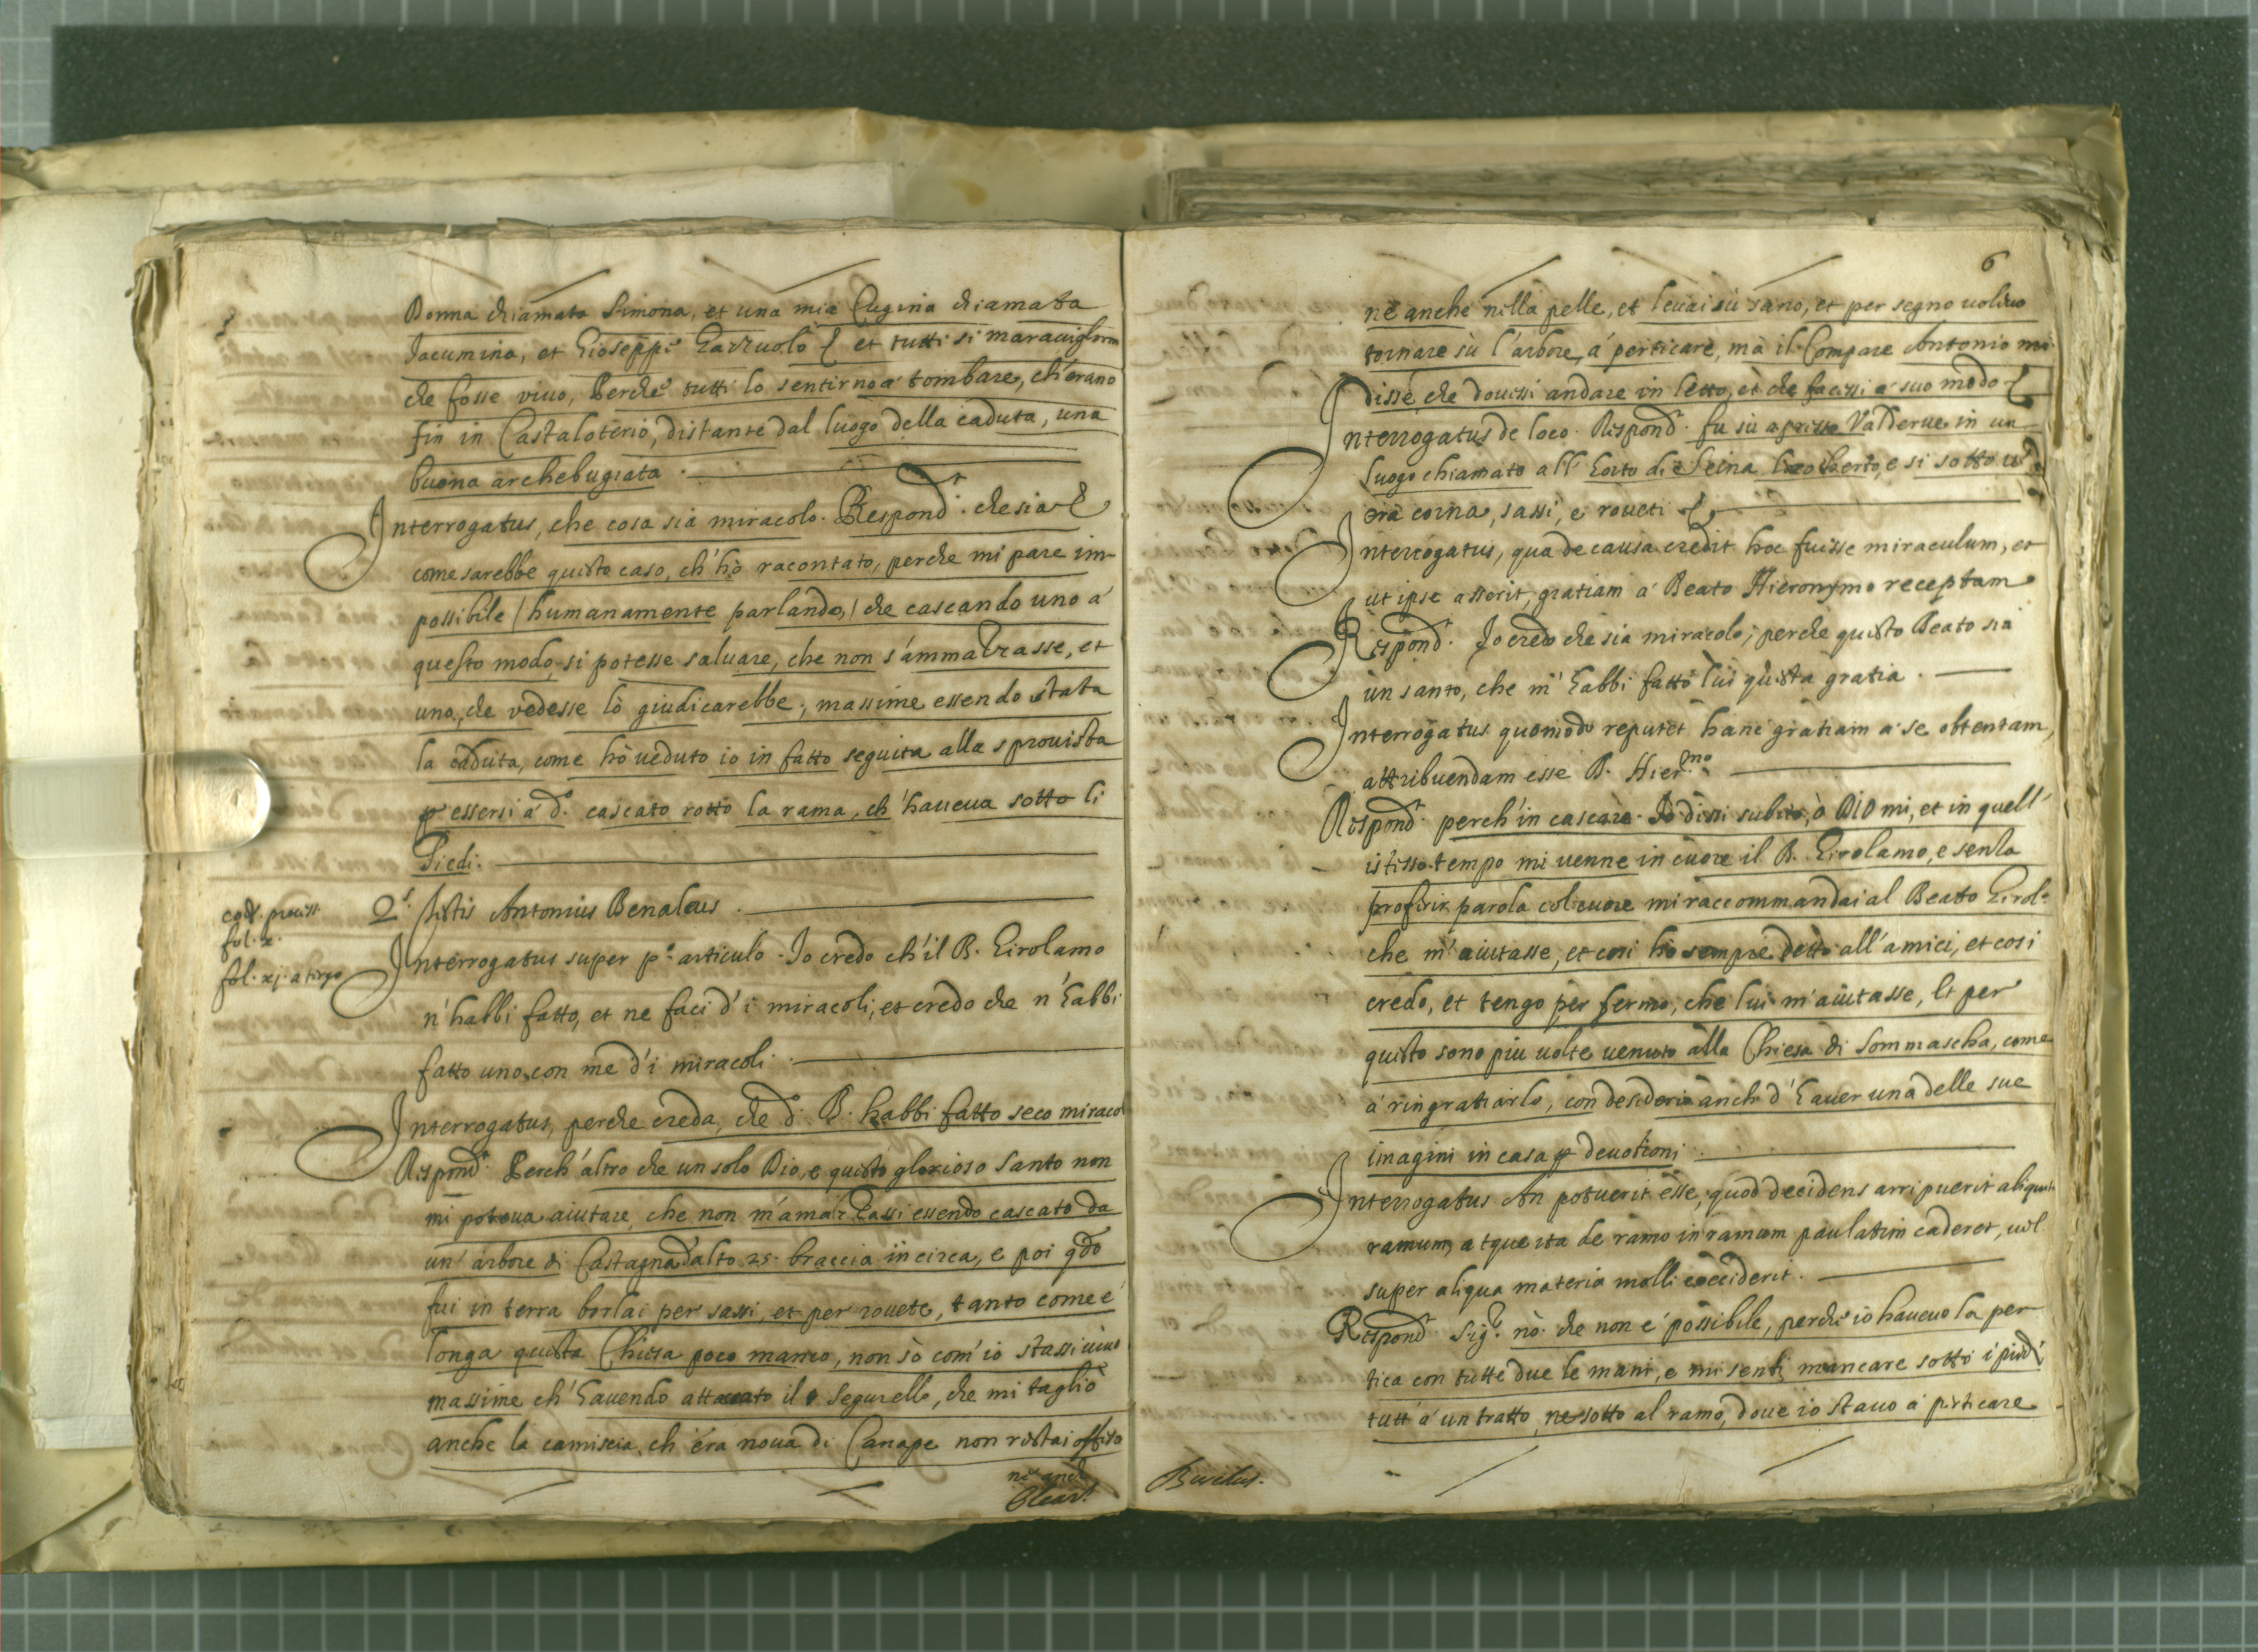 Donna chiamata Simona, et una mia Cugina chiamata
Jacumina, et Gioseppe Gazzuolo et tutti si maraviglorno
che fosse vivo, Perche tutti lo sentirno a tombare, ch'erano
fin in Castaloterio, distante dal luogo della caduta, una
buona archebugiata.
Interrogatus, che cosa sia miracolo. Respond.t che sia
come sarebbe questo caso, ch'hò racontato, perche mi pare im-
possibile (humanamente parlando,) che cascando uno à
questo modo, si potesse saluare, che non s'ammazzasse, et
uno, che vedesse lò giudicarebbe; massime essendo stata
la caduta, come hò ueduto io in fatto seguita alla sprouista
p essersi à d.o cascato rotto la rama, ch'haueua sotto li
Piedi.
cod. process.
fol. x.
fol. xj. a tergo
2.s testis Antonius Benaleus.
Interrogatus super p.o articulo. Io credo ch'il B. Girolamo
n'habbi fatto, et ne faci d'i miracoli, et credo che n'habbi
fatto uno con me d'i miracoli.
Interrogatus, perche creda, che d.o B. habbi fatto seco miracol
Respond.t Perch'altro che un solo Dio, e questo glorioso Santo non
mi poteua aiutare, che non m'amazzassi essendo cascato da
un'arbore di Castagna d'alto 25. braccia in circa, e poi qdo
fui in terra borlai per sassi, et per rouete, tanto come è
longa questa Chiesa poco manco, non sò com'io stassi uiuo
massime ch'hauendo attacato il segurello, che mi tagliò
anche la camiscia, ch'era noua di Canape non restai offeso
ne anch
6
ne anche nella pelle, et leuai sù sano, et per segno uolsuo
tornare sù l'arbore, à perticare, mà il Compare Antonio mi
disse che douessi andare in letto, et che facessi a suo modo
Interrogatus de loco. Respond.t fu sù apresso Valderue in un
luogo chiamato all' Corto di Seina, e si sotto
era corna, sassi, e roueti
Interrogatus, qua de causa credit hoc fuisse miraculum, et
ut ipse asserit, gratiam a Beato Hieronymo receptam
Respond.t Io credo che sia miracolo; perche questo Beato sia
un santo, che m'habbi fatto lui questa gratia.
Interrogatus quomodo reputet hanc gratiam a se obtentam,
attribuendam esse B. Hier.mo
Respond.t perch'in cascare. Io dissi subito, ò Dio mi, et in quell'
istesso tempo mi uenne in cuore il B. Girolamo, e senza
proferir parola col cuore mi raccommandai al Beato Girol.o
che m'aiutasse, et cosi hò sempre detto all'amici, et cosi
credo, et tengo per fermo, che lui m'aiutasse, et per
questo sono piu uolte uenuto alla Chiesa di Sommascha, come
a ringratiarlo, con desiderio anch d'hauer una delle sue
imagini in casa p deuotioni.
Interrogatus An potuerit esse, quod decidens arripuerit aliquem
ramum, atque ita de ramo in ramum paulatim caderet, uel
super aliqua materia molli ceciderit.
Respond.t Sig.r nò. che non è possibile, perche io haueuo la per
tica con tutte due le mani, e mi senti mancare sotto i piedi
tutt'a un tratto, sotto al ramo, doue io stauo a perticare